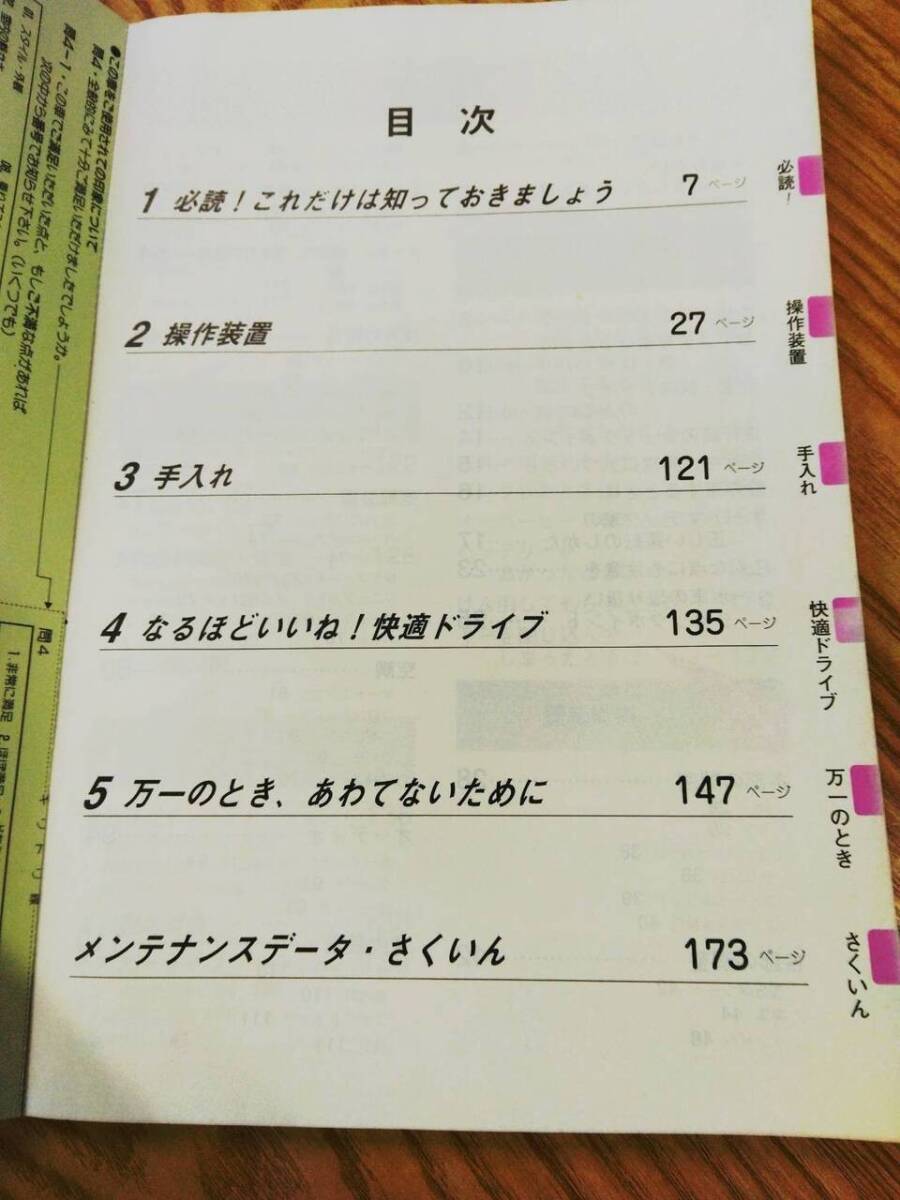 目次
1 必読！これだけは知っておきましょう 7ページ
必読！
2 操作装置 27ページ
操作装置
3 手入れ 121ページ
手入れ
4 なるほどいいね！快適ドライブ 135ページ
快適ドライブ
5 万一のとき、あわてないために 147ページ
万一のとき
メンテナンスデータ・さくいん 173ページ
さくいん
●この車をご使用されての印象について
問4・全般的にみて十分ご満足いただけましたでしょうか。
問4－1・この車でご満足いただいた点と、もしご不満な点があれば
次の中から番号でお知らせ下さい。（いくつでも）
スタイル・外観
問4
1.非常に満足
キリトリ線